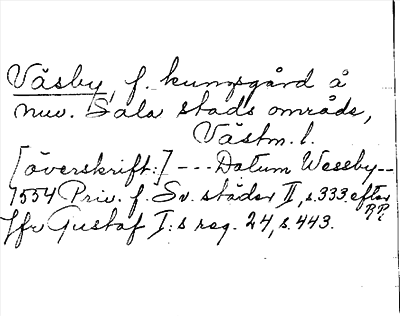 Väsby, f. kungsgård å
nuv. Sala stads område,
Västm. l.
[överskrift:] --- Datum Wesseby --
1554 Priv. f. Sv. städer II, s. 333. efter
RR.
Jfr Gustaf I:s reg. 24, s. 443.